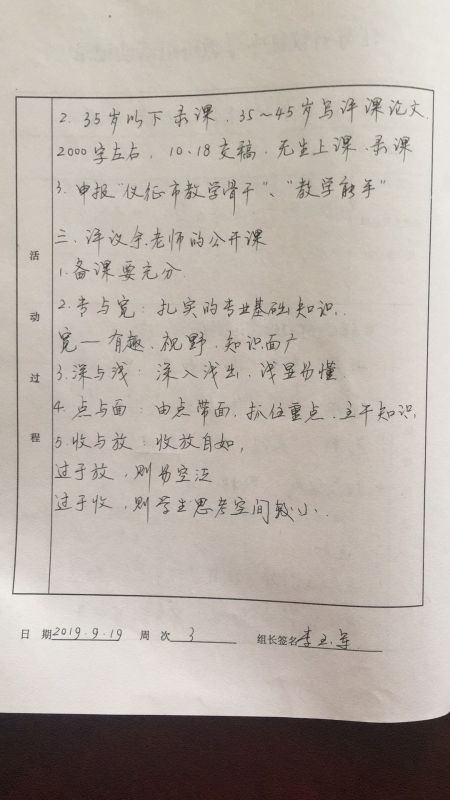 2. 35岁以下录课、35~45岁写评课论文.
2000字左右, 10.18交稿, 无生上课、录课
3. 申报“仪征市教学骨干”、“教学能手”
三、评议余老师的公开课
1. 备课要充分.
2. 专与宽: 扎实的专业基础知识.
宽—有趣、视野、知识面广
3. 深与浅: 深入浅出, 浅显易懂.
4. 点与面: 由点带面, 抓住重点、主干知识,
5. 收与放: 收放自如,
过于放, 则易空泛
过于收, 则学生思考空间较小.
活动过程
日 期 2019.9.19 周 次 3 组长签名 李